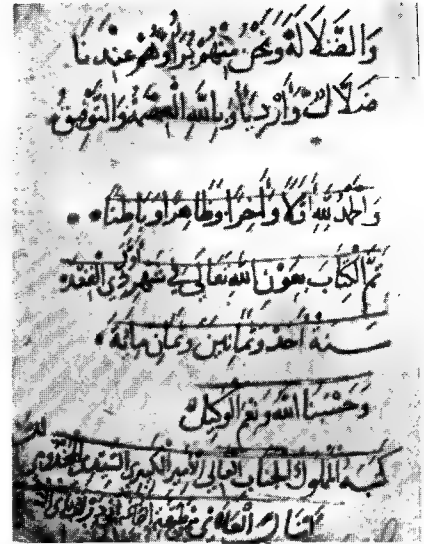 وَالضَّلَالَةُ وَنَحْنُ مِنْهُمْ بُرَآؤُ وَهُمْ عِنْدَنَا
ضُلَّالٌ وَارْدِيَاءُ وَبِاللَّهِ الْعِصْمَةُ وَالتَّوْفِيقُ
وَالْحَمْدُ لِلَّهِ اَوَّلًا وَآخِرًا وَظَاهِرًا وَبَاطِنًا
تَمَّ الْكِتَابُ بِعَوْنِ اللَّهِ تَعَالَى فِي شَهْرِ ذِي الْقَعْدَة
سَنَةَ اَحَدَ وَثَمَانِينَ وَثَمَانِ مِائَةٍ
وَحَسْبُنَا اللَّهُ وَنِعْمَ الْوَكِيلُ
كَتَبَهُ الْمَمْلُوكُ الْجَنَابِ الْعَالِي الْأَمِيرِ الْكَبِيرِي السَّيِّدِي